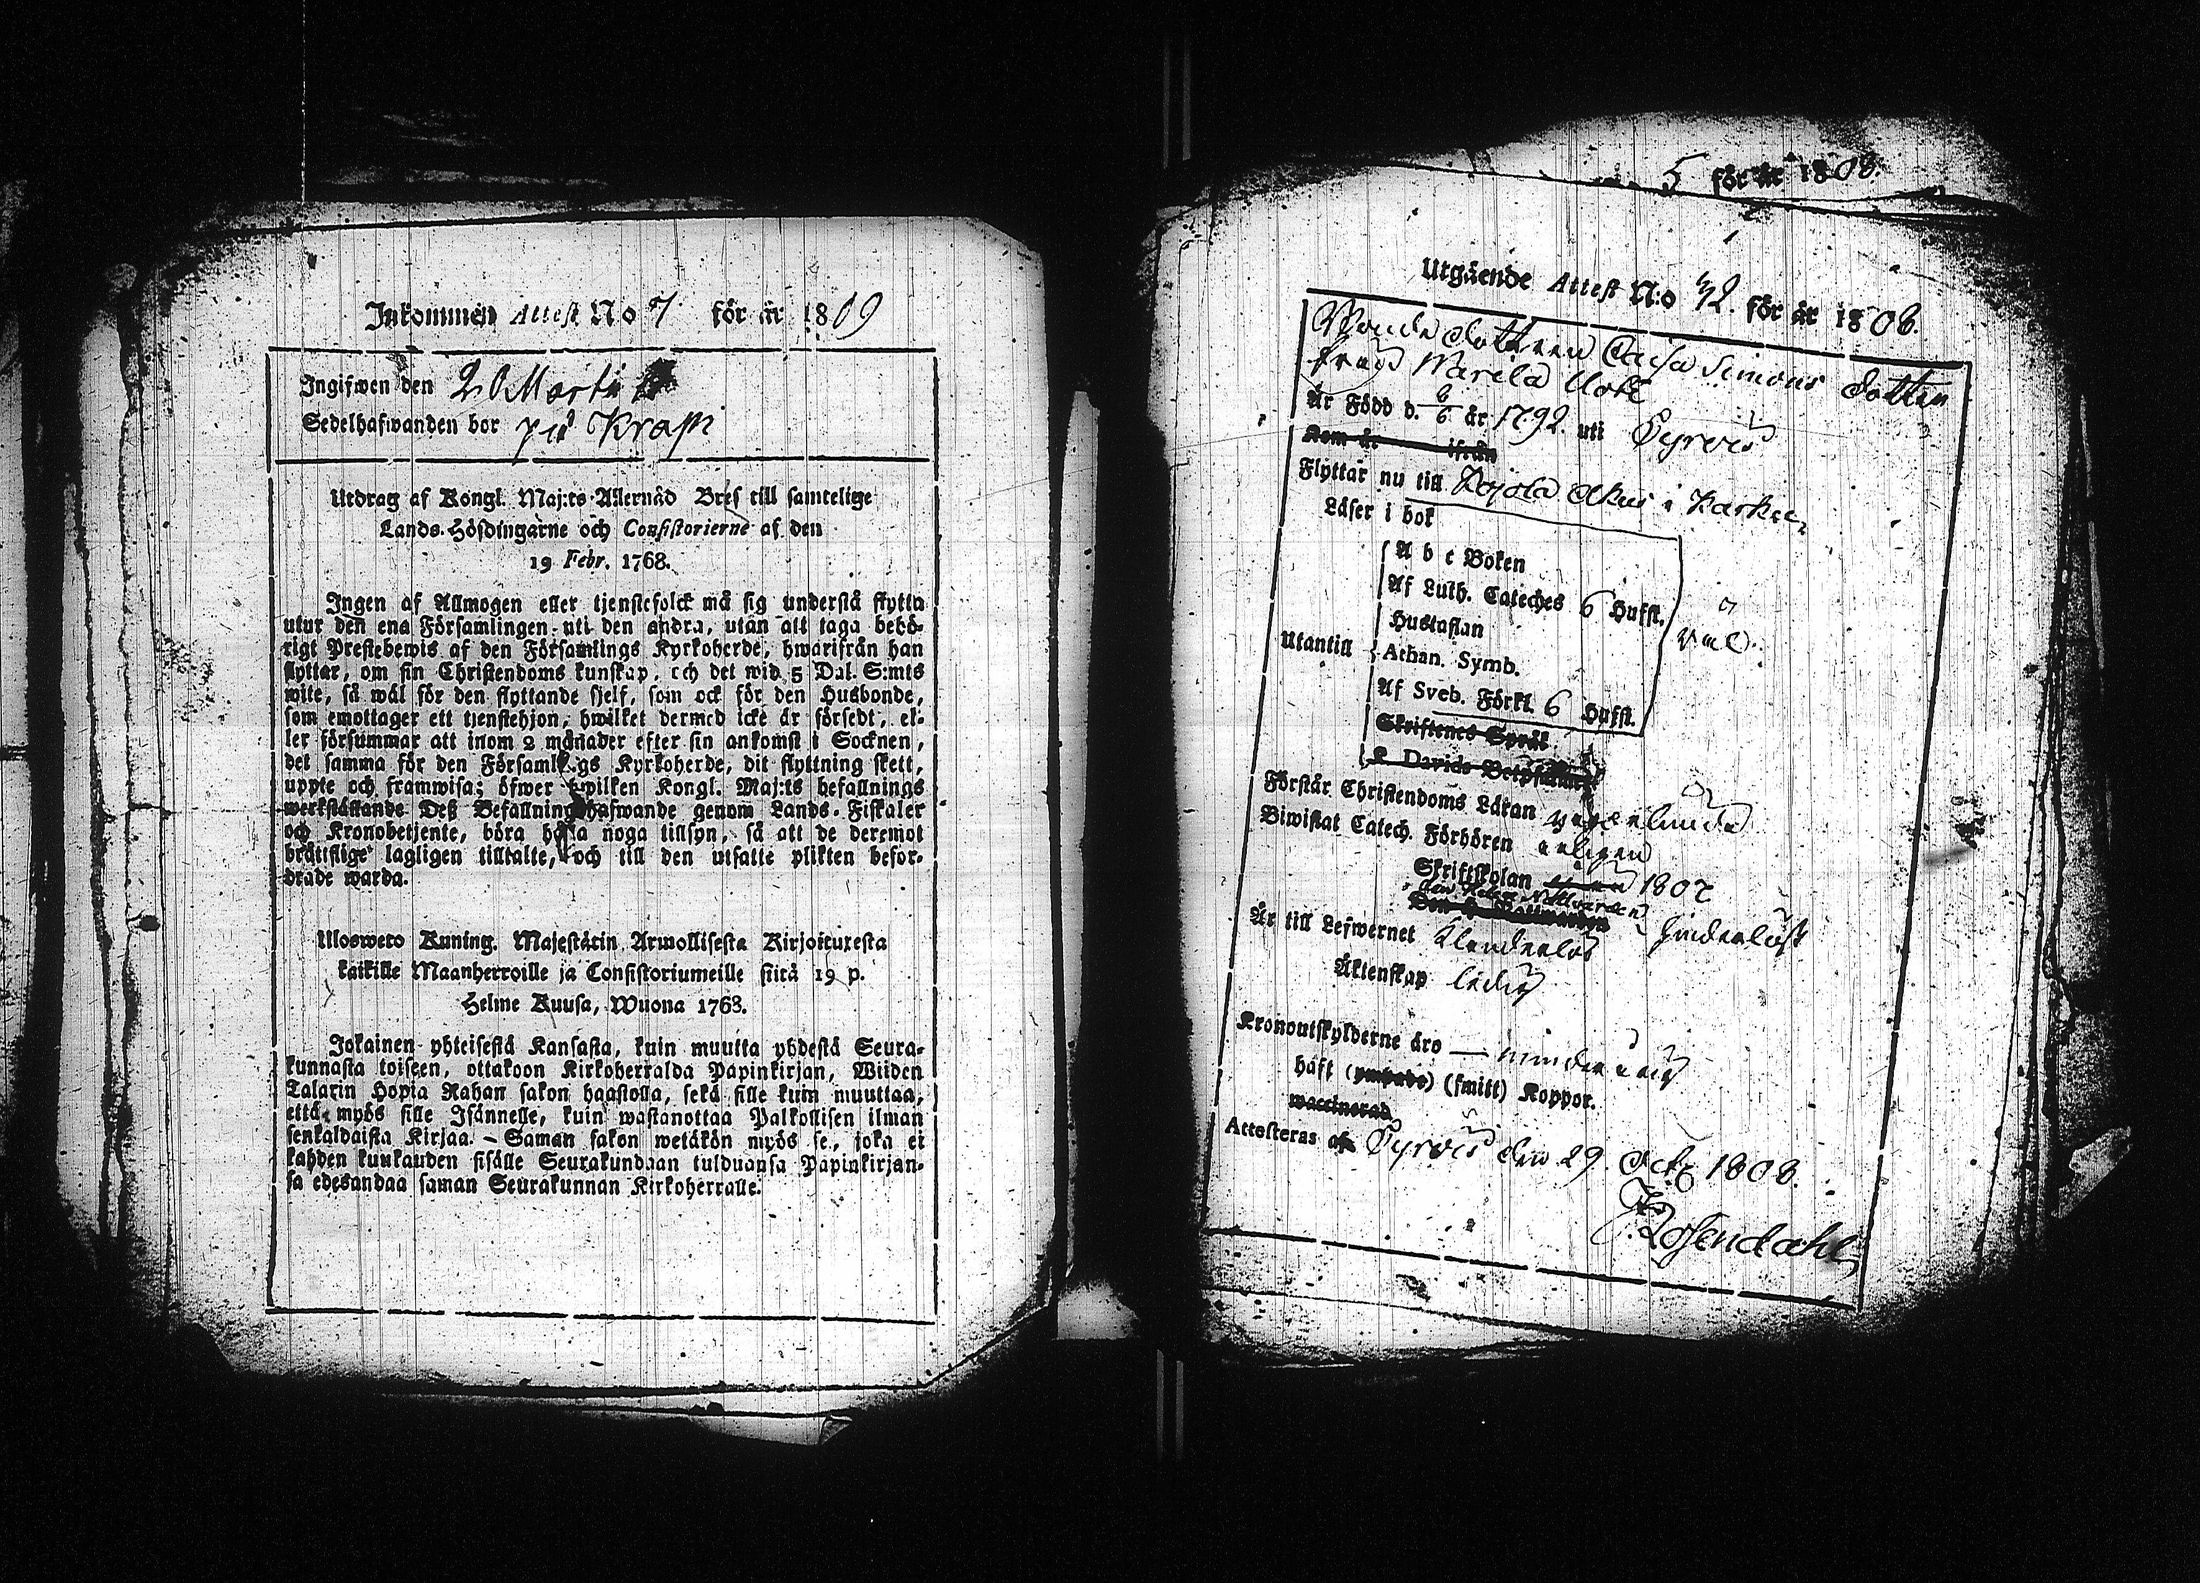 Inkommen Attest No 7 för år 1809
Ingifwen den 20 Martii
Sedelhafwanden bor på Krapi
Utdrag af Kongl. Maj:ts Allernåd Bref till samtelige
Lands-Höfdingarne och Consistorierne af den
19 Febr. 1768.
Ingen af Allmogen eller tjenstefolck må sig understå flytta
utur den ena Församlingen uti den andra, utan att taga behö-
rigt Prestebewis af den Församlings Kyrkoherde, hwarifrån han
flyttar, om sin Christendoms kunskap, och det wid 5 Dal. S:mts
wite, så wäl för den flyttande sjelf, som ock för den Husbonde,
som emottager ett tjenstehjon, hwilket dermed icke är försedt, el-
ler försummar att inom 2 månader efter sin ankomst i Socknen,
det samma för den Församlings Kyrkoherde, dit flyttning skett,
uppte och framwisa; öfwer hwilken Kongl. Maj:ts befallnings
werkställande Deß Befallningshafwande genom Lands-Fiskaler
och Kronobetjente, böra hafwa noga tillsyn, så att de deremot
bråttslige lagligen tilltalte, och till den utsatte plikten befor-
drade warda.
Ulosweto Kuning. Majestätin Armollisesta Kirjoituxesta
kaikille Maanherroille ja Consistoriumeille siitä 19 p.
Helme Kuusa, Wuona 1768.
Jokainen yhteisestä Kansasta, kuin muutta yhdestä Seura-
kunnasta toiseen, ottakoon Kirkoherralda Papinkirjan, Wiiden
Talarin Hopia Rahan sakon haastolla, sekä sille kuin muuttaa,
että myös sille Isännelle, kuin wastanottaa Palkollisen ilman
senkaldaista Kirjaa. – Saman sakon wetäkön myös se, joka ei
kahden kuukauden sisälle Seurakundaan tulduansa Papinkirjan-
sa edesandaa saman Seurakunnan Kirkoherralle.
5 för år 1808.
Utgående Attest N:o 32. för år 1808.
Bonde dottren Caisa Simons dotter
från Marila
Är Född d. 6/6 år 1792. uti Tyrvis
Kom år ifrån
Flyttar nu till Kojola Akus i Karkku
Läser i bok
A b c Boken
Af Luth. Cateches 6 Hufst.
Hustaflan
wäl.
Utantill
Athan. Symb.
Af Sveb. Förkl. 6 Hufst.
Skriftenes Språk
Davids Botpsalmer
Förstår Christendoms Läran
Biwistat Catech. Förhören årligen
Skriftskolan 1807
den Helga Nattvarden
Är till Lefwernet Klanderlös
Äktenskap ledig
Kronoutskylderne äro — minderårig
haft (ympade) (smitt) Koppor.
waccinerad
Attesteras af Tyrvis den 29. Oct. 1808.
Rosendahl